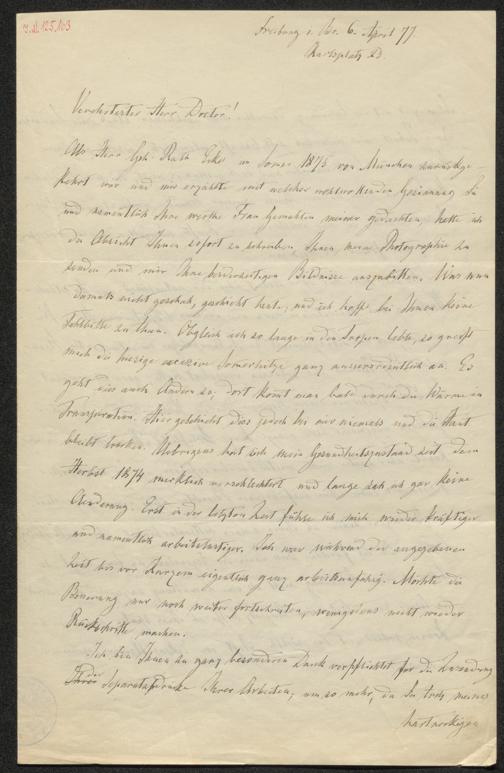 J.N. 125.103
Freiburg i. Br. 6. April 77
Karlsplatz 23.
Verehrtester Herr Doctor!
Als Herr Geh. Rath Ecker im Somer 1875 von München zurückge-
kehrt war und mir erzählte mit welcher wohlwollenden Gesinnung Sie
und namentlich Ihre werthe Frau Gemahlin meiner gedachten, hatte ich
die Absicht Ihnen sofort zu schreiben, Ihnen meine Photographie zu
senden und mir Ihre beiderseitigen Bildnisse auszubitten. Was nun
damals nicht geschah, geschieht heute, und ich hoffe bei Ihnen keine
Fehlbitte zu thun. Obgleich ich so lange in den Tropen lebte, so greift
mich die hiesige Somerhitze ganz ausserordentlich an. Es
geht dies auch Andern so, dort komt man bald durch die Wärme in
Transpiration. Hier geschieht dies jedoch bei mir niemals und die Haut
bleibt trocken. Uebrigens hat sich mein Gesundheitszustand seit dem
Herbst 1874 merklich verschlechtert und lange sah ich gar keine
Aenderung. Erst in der letzten Zeit fühle ich mich wieder kräftiger
und namentlich arbeitslustiger. Ich war während der angegebenen
Zeit bis vor Kurzem eigentlich ganz arbeitsunfähig. Möchte die
Besserung nur noch weiter fortschreiten, wenigstens nicht wieder
Rückschritte machen.
Ich bin Ihnen zu ganz besonderem Dank verpflichtet für die Zusendung
der Separatabdrücke Ihrer Arbeiten, um so mehr, da Sie trotz meines
hartnäckigen